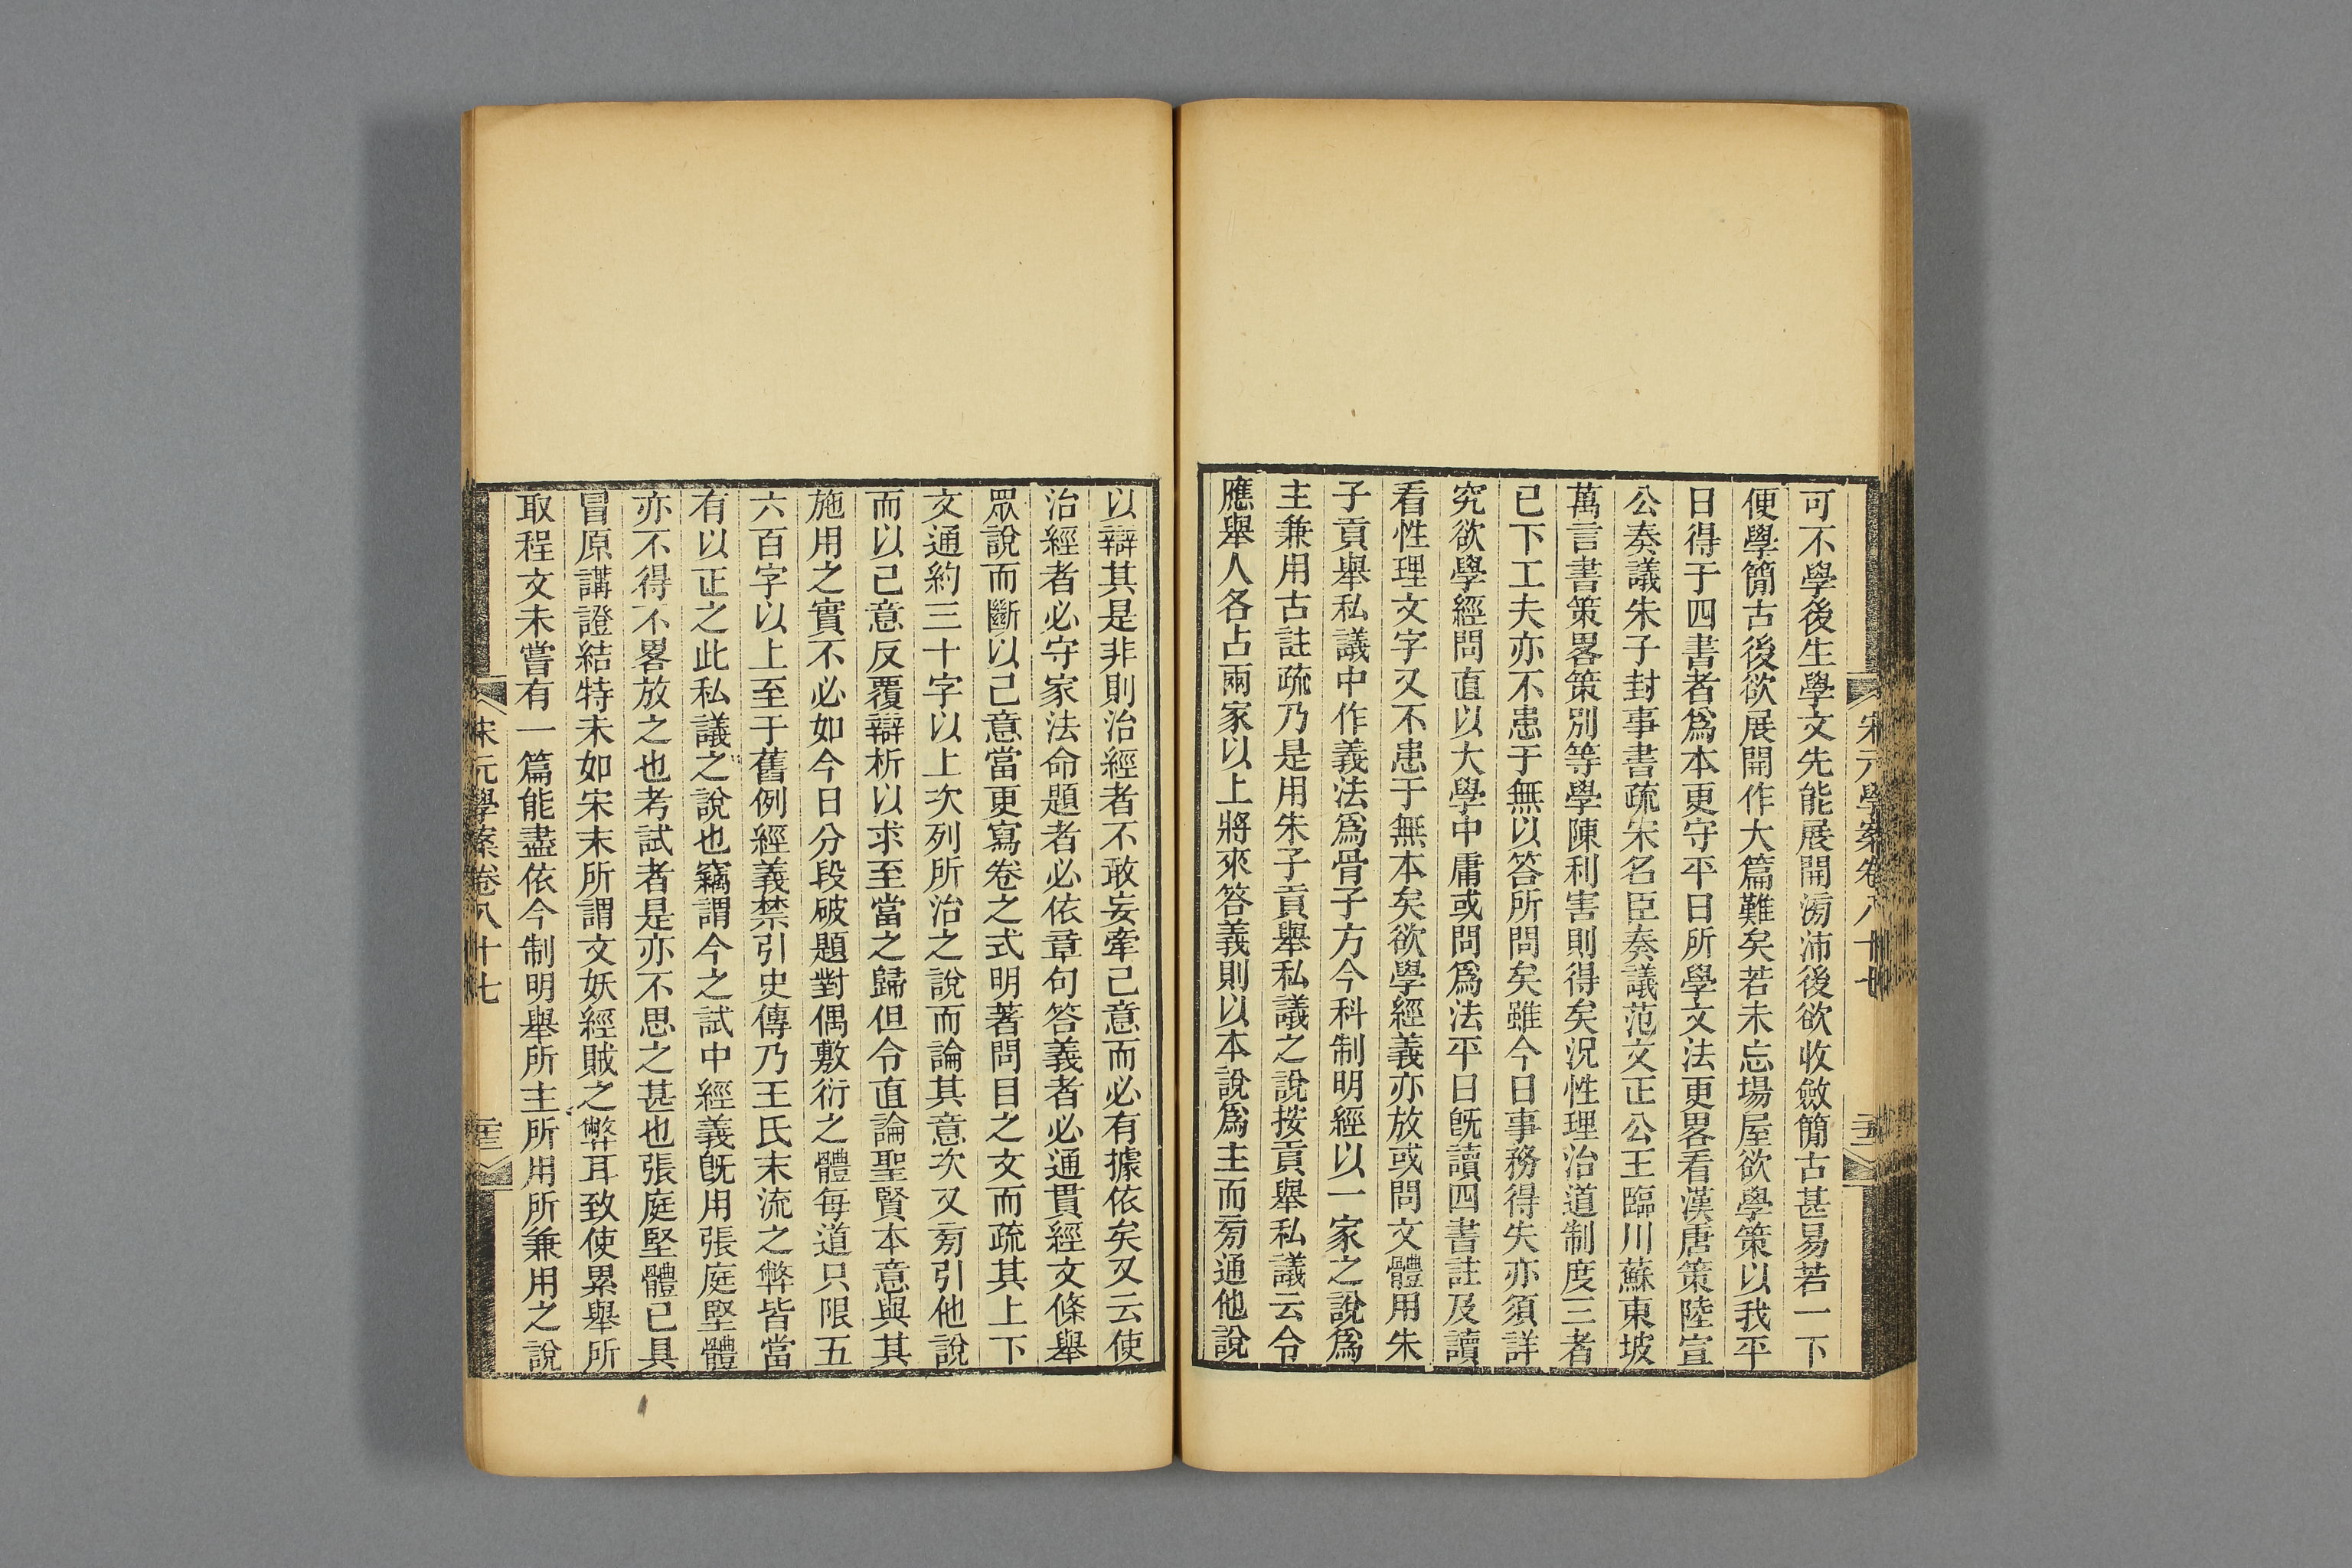 可不學後生學文先能展開滂沛後欲收斂簡古甚易若一下
便學簡古後欲展開作大篇難矣若未忘場屋欲學策以我平
日得于四書者爲本更守平日所學文法更畧看漢唐策陸宣
公奏議朱子封事書疏宋名臣奏議范文正公王臨川蘇東坡
萬言書策畧策別等學陳利害則得矣況性理治道制度三者
已下工夫亦不患于無以答所問矣雖今日事務得失亦須詳
究欲學經問直以大學中庸或問爲法平日旣讀四書註及讀
看性理文字又不患于無本矣欲學經義亦放或問文體用朱
子貢舉私議中作義法爲骨子方今科制明經以一家之說爲
主兼用古註疏乃是用朱子貢舉私議之說按貢舉私議云令
應舉人各占兩家以上將來答義則以本說爲主而旁通他說
以辯其是非則治經者不敢妄牽己意而必有據依矣又云使
治經者必守家法命題者必依章句答義者必通貫經文條舉
眾說而斷以己意當更寫卷之式明著問目之文而疏其上下
文通約三十字以上次列所治之說而論其意次又旁引他說
而以己意反覆辯析以求至當之歸但令直論聖賢本意與其
施用之實不必如今日分段破題對偶敷衍之體每道只限五
六百字以上至于舊例經義禁引史傳乃王氏末流之弊皆當
有以正之此私議之說也竊謂今之試中經義旣用張庭堅體
亦不得不畧放之也考試者是亦不思之甚也張庭堅體已具
冒原講證結特未如宋末所謂文妖經賊之弊耳致使累舉所
取程文未嘗有一篇能盡依今制明舉所主所用所兼用之說
宋元學案卷八十七